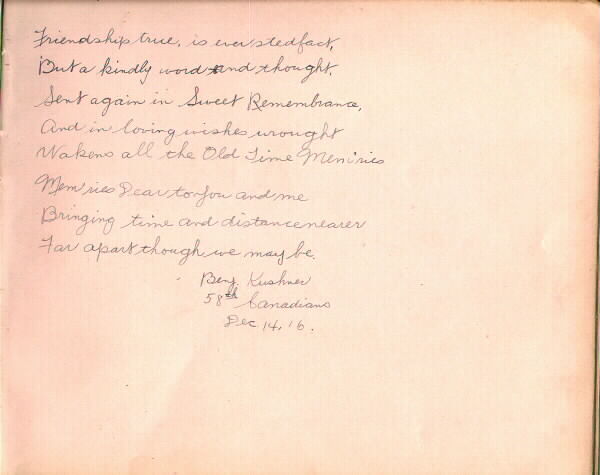 Friendship true, is ever stedfact,
But a kindly word and thought,
Sent again in Sweet Remembrance,
And in loving wishes wrought
Wakens all the Old Time Mem'ries
Mem'ries Dear to You and me
Bringing time and distance nearer
Far apart though we may be.
Benj. Kushner
58th Canadians
Dec 14, 16.